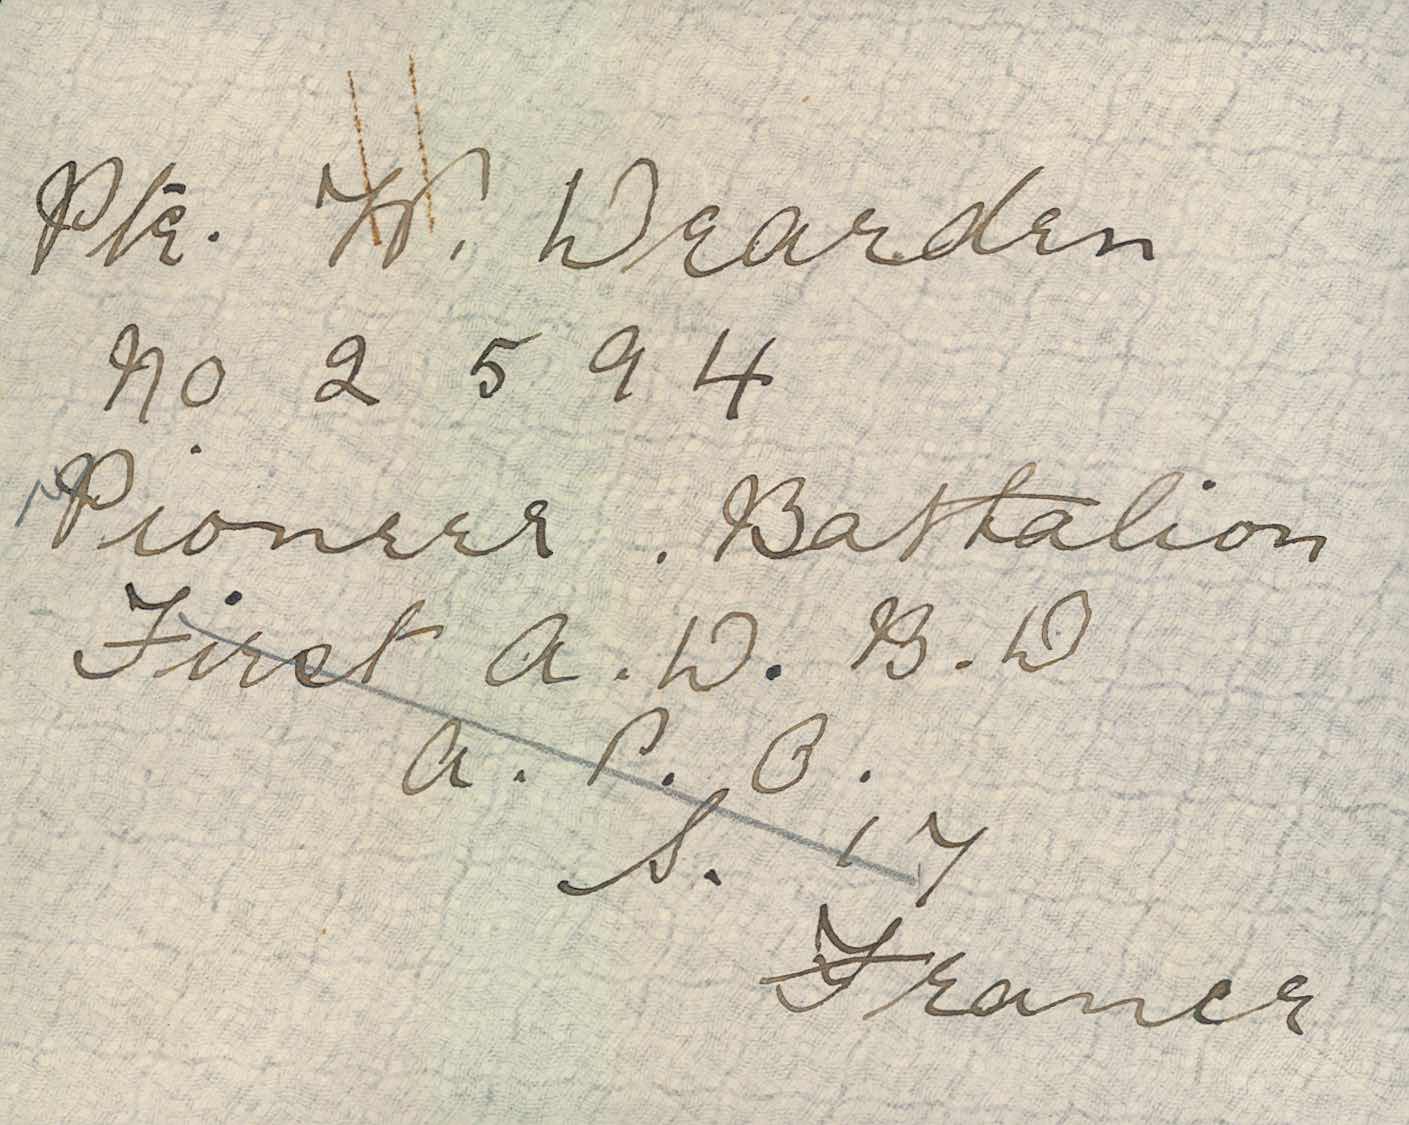 Pte. W. Dearden
No 2594
Pioneer . Battalion
First A.D. B.D
A. P. O.
S. 17
France